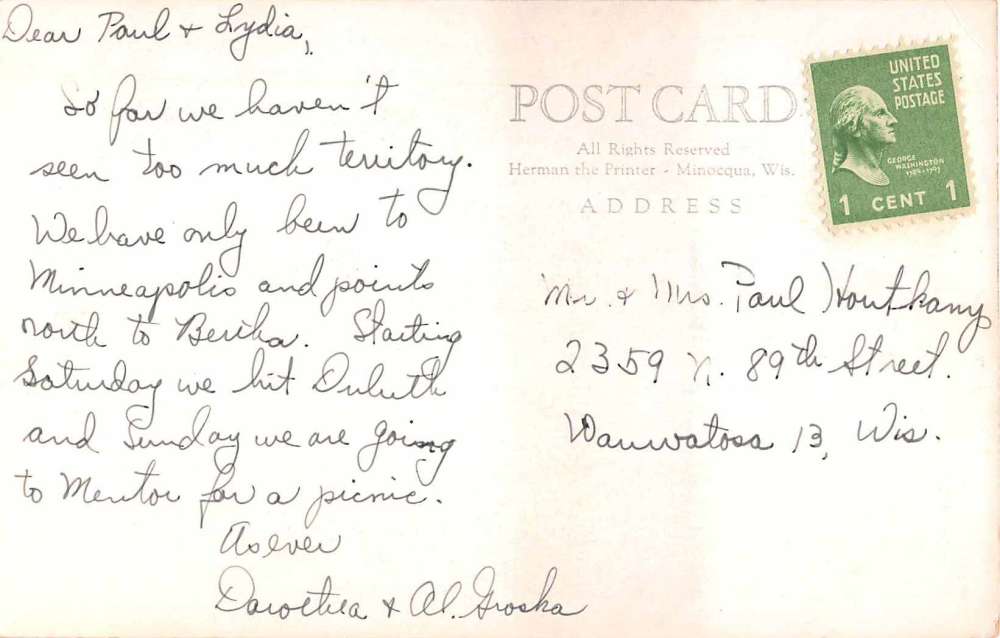 Dear Paul & Lydia,
So far we haven't
seen too much territory.
We have only been to
Minneapolis and points
north to Bertha. Starting
Saturday we hit Duluth
and Sunday we are going
to Mentor for a picnic.
As ever
Dorothea & Al. Groska
POST CARD
All Rights Reserved
Herman the Printer - Minocqua, Wis.
ADDRESS
UNITED
STATES
POSTAGE
GEORGE
WASHINGTON
1789-1797
1 CENT 1
Mr. & Mrs. Paul
2359 N. 89th Street.
Wauwatosa 13, Wis.